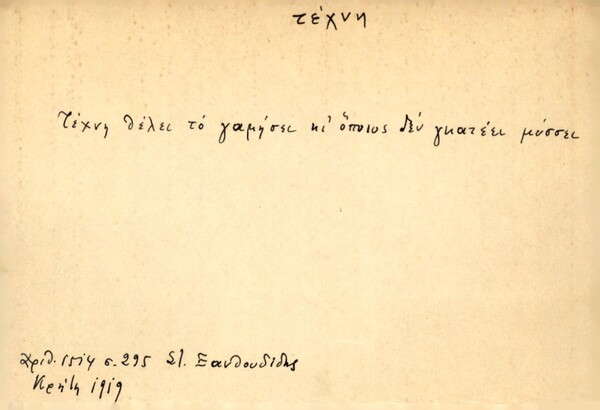 τέχνη
Τέχνη θέλει τό γαμήσει κι' ὅποιος δέν γκατέει μόσσει
Ἀριθ. 1514 σ. 295 Στ. Ξανθουδίδης
Κρήτη 1919